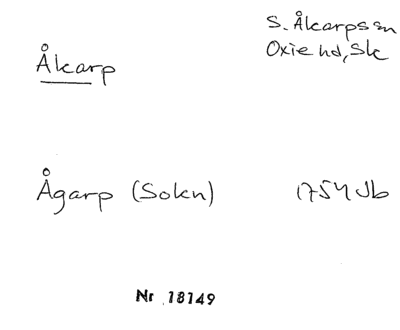 Ålkarp
S. Ålkarps sn
Oxie hd, Sk
Ågarp (Sokn)
1754 Jb
Nr 18149